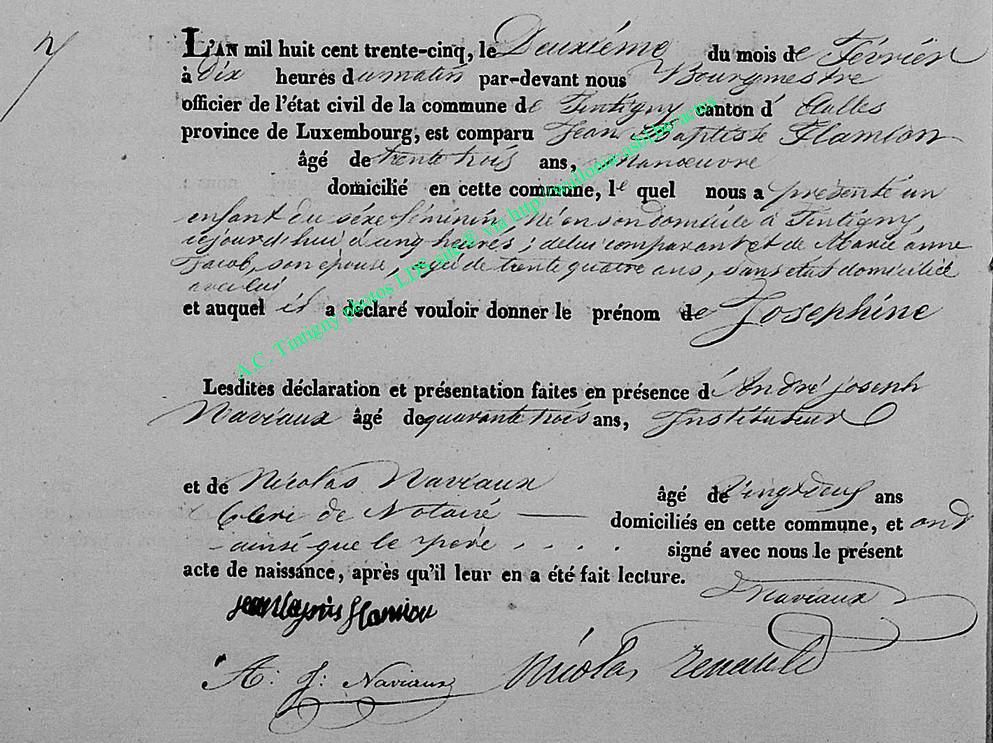 7
L'AN mil huit cent trente-cinq, le Deuxiéme du mois de Février
à dix heures du matin par-devant nous Bourgmestre
officier de l'état civil de la commune de Tintigny canton d' Etalles
province de Luxembourg, est comparu Jean Baptiste Flamion
âgé de trente trois ans, Manoeuvre
domicilié en cette commune, le quel nous a présenté un
enfant du séxe féminin, né en son domicile à Tintigny
cejourd'hui à cinq heures, de lui comparant et de Marie anne
Jacob, son epouse, agée de trente quatre ans, sans etat domiciliée
avec lui
et auquel il a déclaré vouloir donner le prénom de Joséphine
Lesdites déclaration et présentation faites en présence d' André joseph
Naviaux âgé de quarante trois ans, Instituteur
et de Nicolas Naviaux âgé de vingt deux ans
Clerc de Notaire domiciliés en cette commune, et ont
ainsi que le père . . . . signé avec nous le présent
acte de naissance, après qu'il leur en a été fait lecture.
Naviaux
jean Flamion
A: J: Naviaux Nicolas Renauld
A.C. Tintigny photos LDS site @ via http: